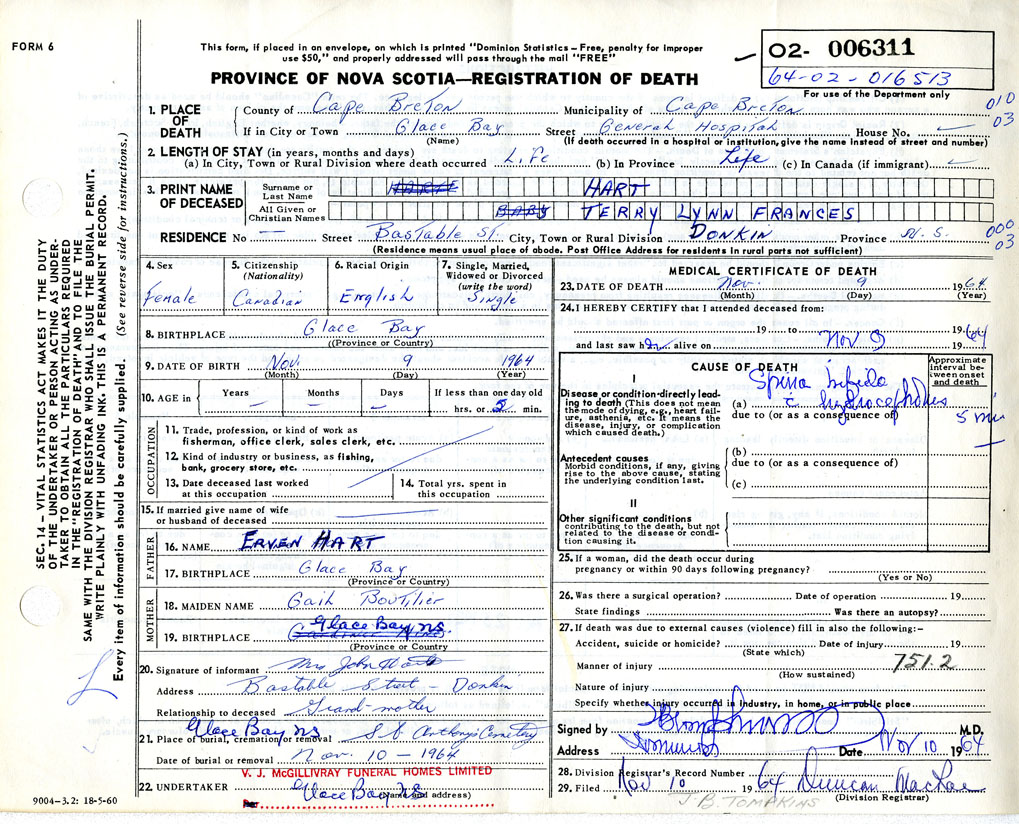 FORM 6
This form, if placed in an envelope, on which is printed "Dominion Statistics – Free, penalty for improper
use $50," and properly addressed will pass through the mail "FREE"
02- 006311
64-02-016513
For use of the Department only
PROVINCE OF NOVA SCOTIA—REGISTRATION OF DEATH
010
03
1. PLACE OF DEATH
County of Cape Breton Municipality of Cape Breton
If in City or Town Glace Bay Street General Hospital House No.
(Name) (If death occurred in a hospital or institution, give the name instead of street and number)
2. LENGTH OF STAY (in years, months and days)
(a) In City, Town or Rural Division where death occurred Life (b) In Province Life (c) In Canada (if immigrant)
3. PRINT NAME OF DECEASED
Surname or Last Name HART
All Given or Christian Names BABY TERRY LYNN FRANCES
RESIDENCE No — Street Bastable St. City, Town or Rural Division DONKIN Province N.S.
000
03
(Residence means usual place of abode. Post Office Address for residents in rural parts not sufficient)
4. Sex Female
5. Citizenship (Nationality) Canadian
6. Racial Origin English
7. Single, Married, Widowed or Divorced (write the word) Single
8. BIRTHPLACE Glace Bay
((Province or Country)
9. DATE OF BIRTH Nov. 9 1964
(Month) (Day) (Year)
10. AGE in Years — Months — Days — If less than one day old
hrs. or 5 min.
OCCUPATION
11. Trade, profession, or kind of work as
fisherman, office clerk, sales clerk, etc.
12. Kind of industry or business, as fishing,
bank, grocery store, etc.
13. Date deceased last worked
at this occupation
14. Total yrs. spent in
this occupation
15. If married give name of wife
or husband of deceased
FATHER
16. NAME ERVEN HART
17. BIRTHPLACE Glace Bay
(Province or Country)
MOTHER
18. MAIDEN NAME Gail Boutilier
19. BIRTHPLACE Glace Bay NS.
(Province or Country
20. Signature of informant Mrs John
Address Bastable Street - Donkin
Relationship to deceased Grand-mother
Glace Bay NS
21. Place of burial, cremation or removal St Anthony's Cemetery
Date of burial or removal Nov 10 - 1964
V. J. McGILLIVRAY FUNERAL HOMES LIMITED
22. UNDERTAKER Glace Bay NS
(Name and address)
Per
9004-3.2: 18-5-60
MEDICAL CERTIFICATE OF DEATH
23. DATE OF DEATH Nov. 9 1964
(Month) (Day) (Year)
24. I HEREBY CERTIFY that I attended deceased from:
19 to 19
and last saw her alive on Nov 9 1964
CAUSE OF DEATH
Approximate interval between onset and death
I
Disease or condition directly leading to death (This does not mean
the mode of dying, e.g., heart failure, asthenia, etc. It means the
disease, injury, or complication
which caused death.)
(a) Spina bifida
c̄ hydrocephalus
5 min
due to (or as a consequence of)
Antecedent causes
Morbid conditions, if any, giving
rise to the above cause, stating
the underlying condition last.
(b)
due to (or as a consequence of)
(c)
II
Other significant conditions
contributing to the death, but not
related to the disease or condition causing it.
25. If a woman, did the death occur during
pregnancy or within 90 days following pregnancy?
(Yes or No)
26. Was there a surgical operation? Date of operation 19
State findings Was there an autopsy?
27. If death was due to external causes (violence) fill in also the following:–
Accident, suicide or homicide? Date of injury 19
(State which)
Manner of injury 751.2
(How sustained)
Nature of injury
Specify whether injury occurred in industry, in home, or in public place
Signed by M.D.
Address Dominion Date Nov 10 1964
28. Division Registrar's Record Number
29. Filed Nov 10 1964 Duncan MacRae
(Division Registrar)
J.B. TOMPKINS
SEC. 14 – VITAL STATISTICS ACT MAKES IT THE DUTY
OF THE UNDERTAKER OR PERSON ACTING AS UNDER-
TAKER TO OBTAIN ALL THE PARTICULARS REQUIRED
IN THE "REGISTRATION OF DEATH" AND TO FILE THE
SAME WITH THE DIVISION REGISTRAR WHO SHALL ISSUE THE BURIAL PERMIT.
WRITE PLAINLY WITH UNFADING INK. THIS IS A PERMANENT RECORD.
Every item of information should be carefully supplied. (See reverse side for instructions.)